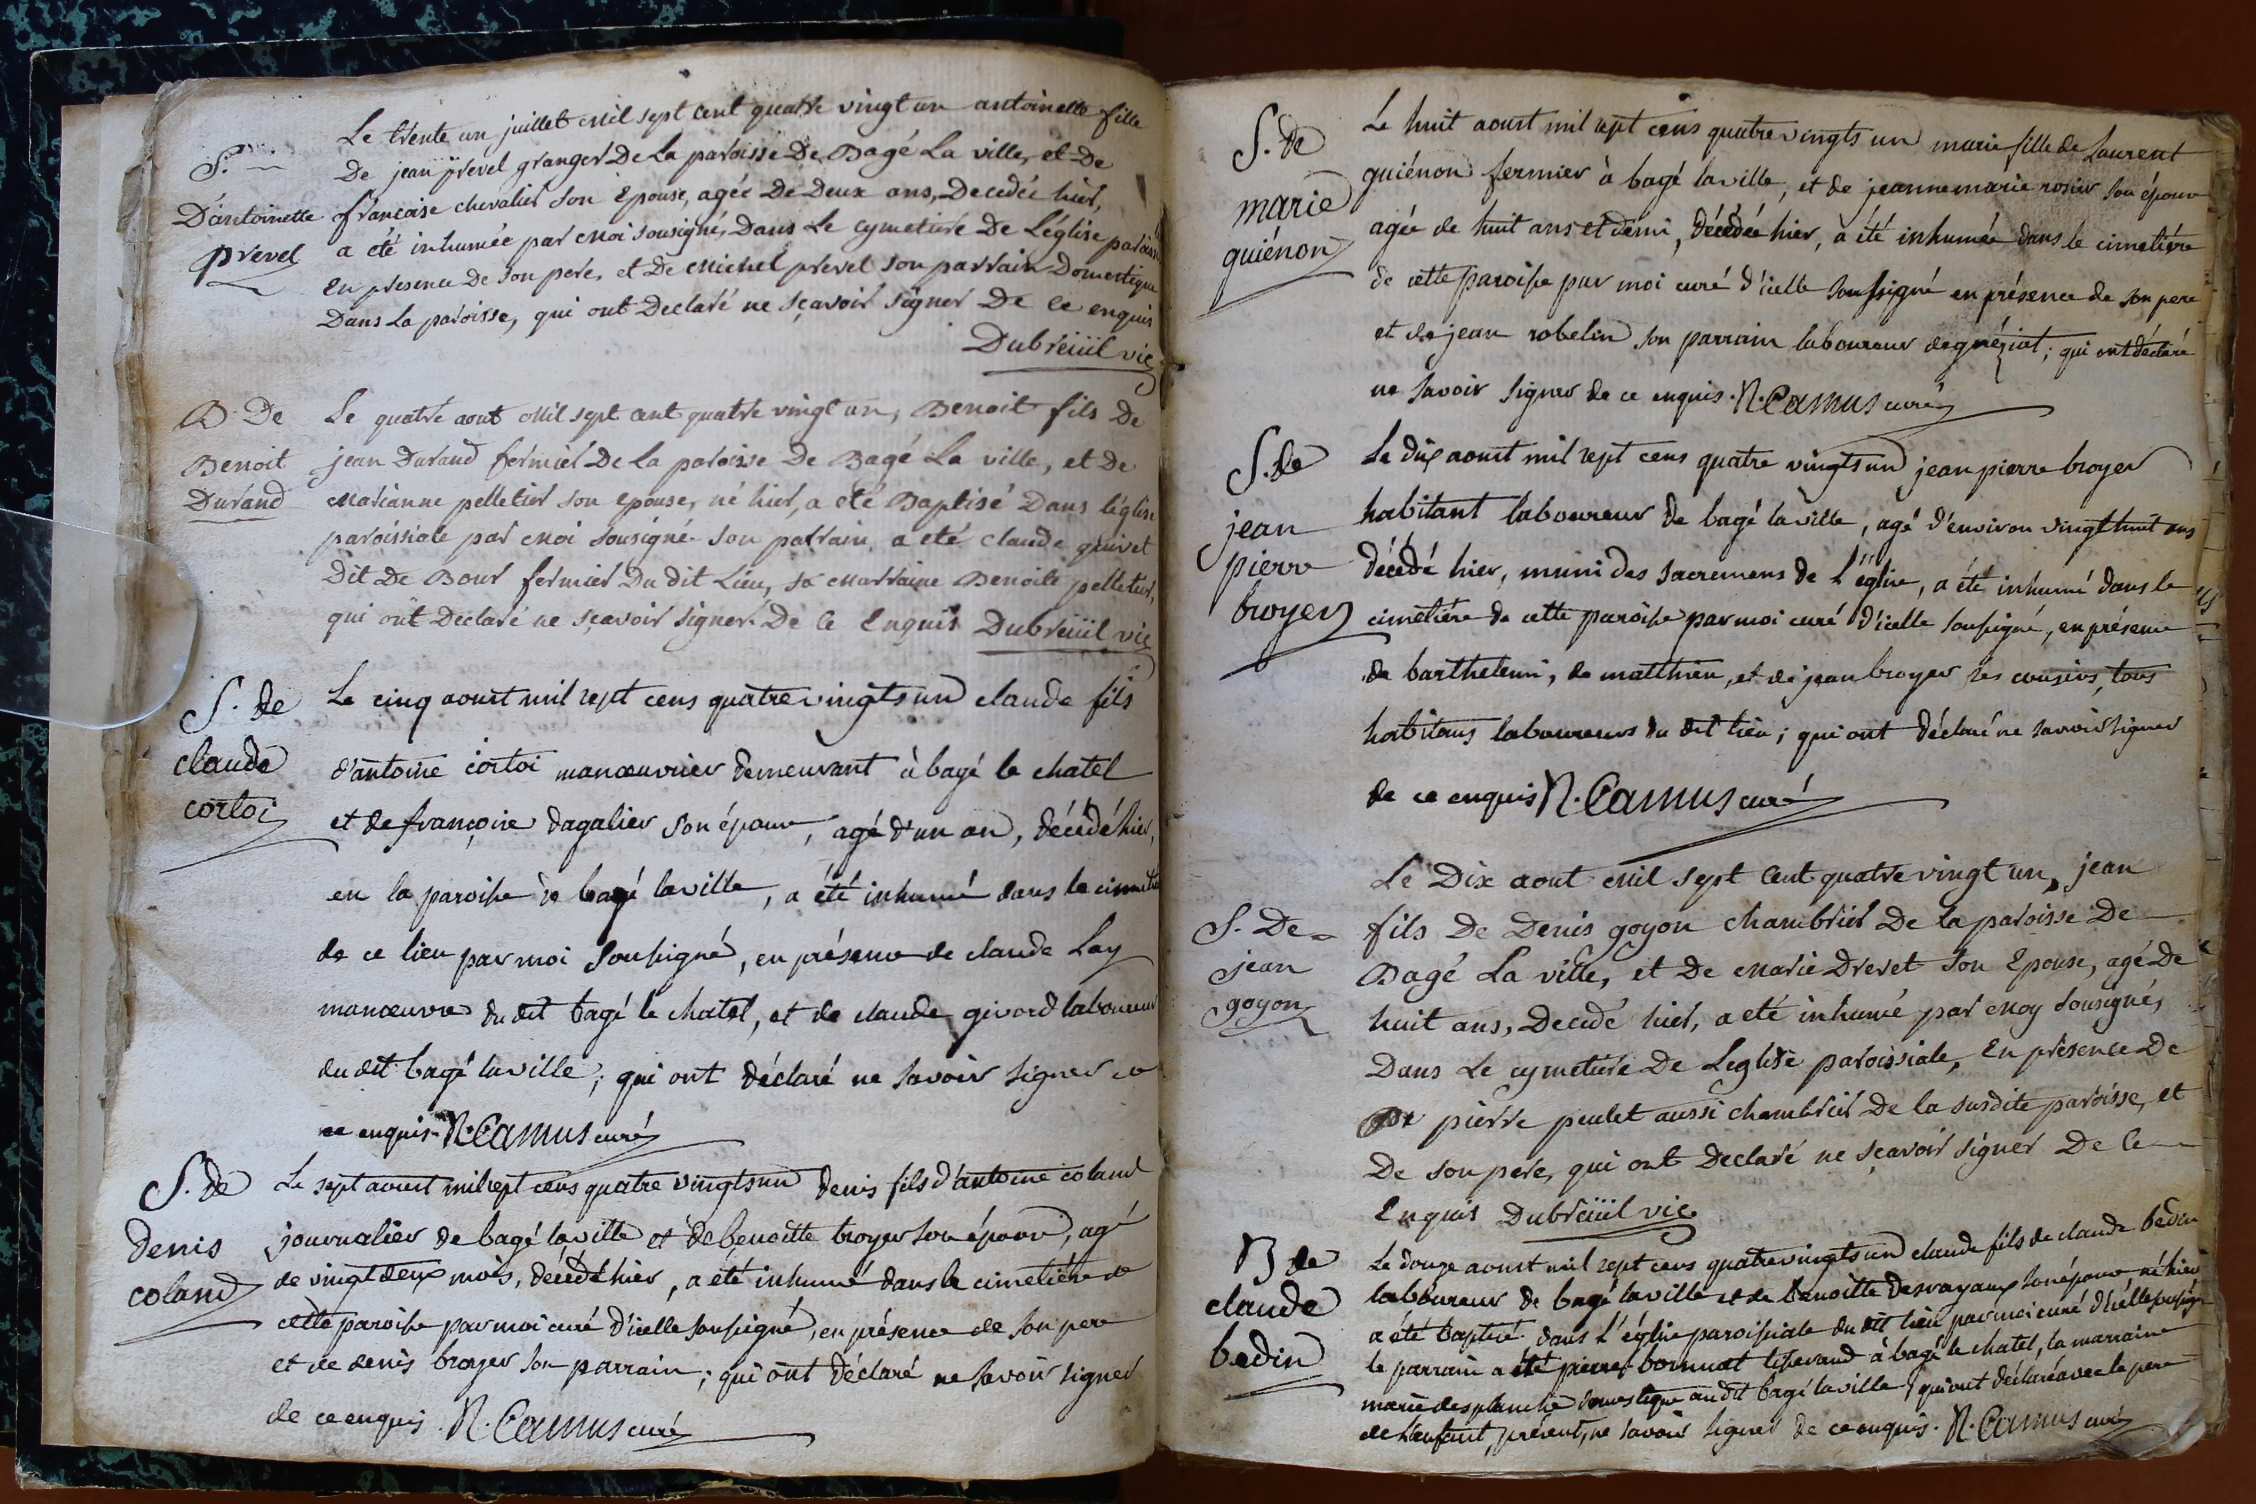 S.
D'antoinette
prevel
Le trente un juillet mil sept cent quatre vingt un antoinette fille
De jean prevel granger De La paroisse De Bagé La ville, et De
francoise chevalier son Epouse, agée De Deux ans, Decedée hier,
a été inhumée par moi sousigné, Dans Le cymetiere De Léglise
En presence De son pere, et De michel prevel son parrain Domestique
Dans La paroisse, qui ont Declaré ne sçavoir signer De ce enquis
Dubreüil vic
B. De
Benoit
Durand
Le quatre aout mil sept cent quatre vingt un, Benoit fils De
jean Durand fermier De La paroisse De Bagé La ville, et De
marianne pelletier son epouse, né hier, a eté Baptisé Dans l'église
paroissiale par moi sousigné. son parrain a eté claude guivet
Dit De Bour fermier Du dit Lieu, sa marraine Benoite pelletier,
qui ont Declaré ne sçavoir signer. De ce Enquis Dubreüil vic
S. de
claude
cortoi
Le cinq aoust mil sept cens quatre vingts un claude fils
d'antoine cortoi manœuvrier demeurant à bagé le chatel
et de françoise dagalier son épouse, agé d'un an, décédé hier,
en la paroisse de bagé laville, a été inhumé dans le
de ce lieu par moi soussigné, en présence de claude Lay
manœuvre du dit bagé le chatel, et de claude givord laboureur
du dit bagé laville; qui ont déclaré ne savoir signer de
ce enquis. N. Camus curé
S. de
denis
coland
Le sept aoust mil sept cens quatre vingts un denis fils d'antoine coland
journalier de bagé laville et de benoitte broyer son épouse, agé
de vingt deux mois, décédé hier, a été inhumé dans le cimetière de
cette paroisse par moi curé d'icelle soussigné, en présence de son pere
et de denis broyer son parrain; qui ont déclaré ne savoir signer
de ce enquis. N. Camus curé
S. de
marie
guiénon
Le huit aoust mil sept cens quatre vingts un marie fille de Laurent
guiénon fermier à bagé laville, et de jeanne marie rosier son épouse
agée de huit ans et demi, décédée hier, a été inhumée dans le cimetière
de cette paroisse par moi curé d'icelle soussigné en présence de son pere
et de jean robelin son parrain laboureur de gréziat; qui ont déclaré
ne savoir signer de ce enquis. N. Camus curé
S. de
jean
pierre
broyer
Le dix aoust mil sept cens quatre vingts un jean pierre broyer
habitant laboureur de bagé laville, agé d'environ vingt huit ans
décédé hier, muni des sacremens de L'église, a été inhumé dans le
cimetière de cette paroisse par moi curé d'icelle soussigné, en présence
de barthelemi, de matthieu, et de jean broyer ses cousins, tous
habitans laboureurs du dit lieu; qui ont déclaré ne savoir signer
de ce enquis N. Camus curé
S. De
jean
goyon
Le Dix aout mil sept cent quatre vingt un, jean
fils De Denis goyon chambrier De la paroisse De
Bagé La ville, et De marie Drevet son Epouse, agé De
huit ans, Decedé hier, a eté inhumé par moy sousigné,
Dans Le cymetiere De Leglise paroissiale, En presence De
pierre peulet aussi chambrier De la susdite paroisse, et
De son pere, qui ont Declaré ne sçavoir signer De ce
Enquis Dubreüil vic
B de
claude
bedin
Le douze aoust mil sept cens quatre vingts un claude fils de claude bedin
laboureur de bagé laville et de benoitte desvayaux son épouse né hier
a été baptisé dans l'église paroissiale du dit lieu par moi curé d'icelle soussigné
le parrain a été pierre bonnat tisserand à bagé le chatel, la marraine
marie desplanche domestique audit bagé laville, qui ont déclaré avec le pere
de l'enfant, présent, ne savoir signer de ce enquis. N. Camus curé